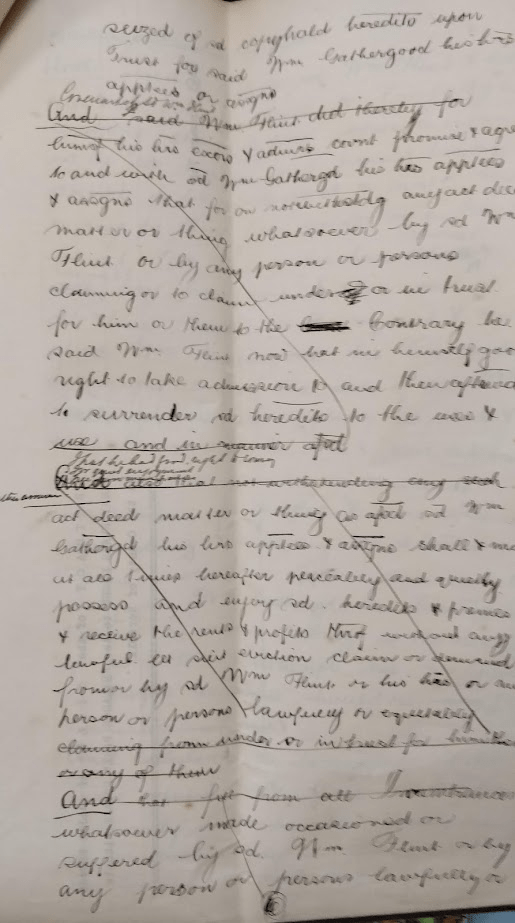 seized of sd copyhald heredits upon
Trust for said Wm Gathergood his hrs
apptees or assgns
Covenants by sd Wm Flint
And said Wm Flint did thereby for
himself his hrs excors & admrs covnt promise & agree
to and with sd Wm Gathergd his hrs apptees
& assgns that for or notwithstdg any act deed
matter or thing whatsoever by sd Wm
Flint or by any person or persons
claiming or to claim under or in trust
for him or them to the Contrary he
said Wm Flint now hat in himself good
right to take admission to and then afterwds
to surrender sd heredits to the uses &
use and in manner afsd
that he had good right to
for quiet enjoyment
And also that notwithstanding any such
act deed matter or thing as afsd sd Wm
Gathergd his hrs apptees & assgns shall & may
at all times hereafter peaceably and quietly
possess and enjoy sd heredits & premes
& receive the rents & profits throf without any
lawful let suit eviction claim or demand
from or by sd Wm Flint or his hrs or any
person or persons lawfully or equitably
claiming from under or in trust for him them
or any of them
And that free from all Incumbrances
whatsoever made occasioned or
suffered by sd Wm Flint or by
any person or persons lawfully or